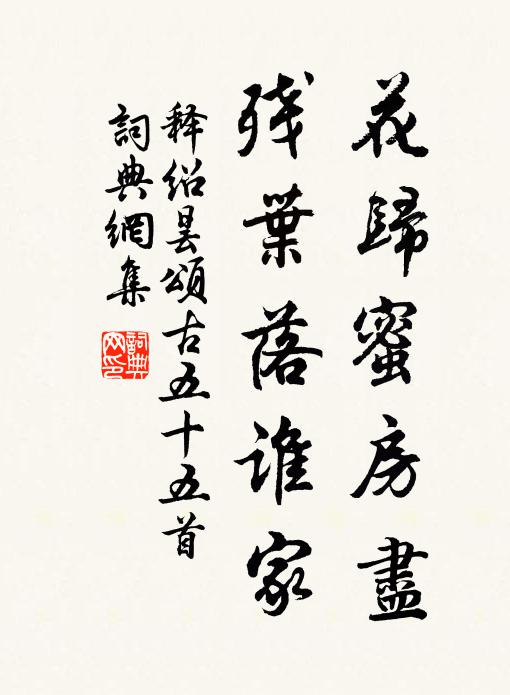 花歸蜜房盡
残葉落誰家
释紹昙頌古五十五首
詞典網集
詞典网印